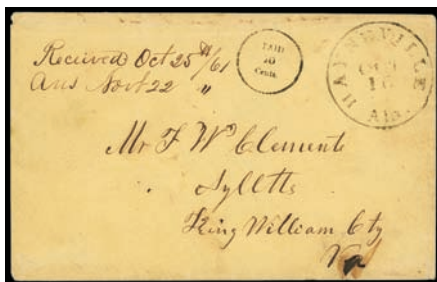 Received Oct 25th/61
Ans Novt 22 "
PAID
10
Cents.
HAYNEVILLE
OCT
16
Ala.
Mr F W Clements
Ayletts
King William Cty
Va